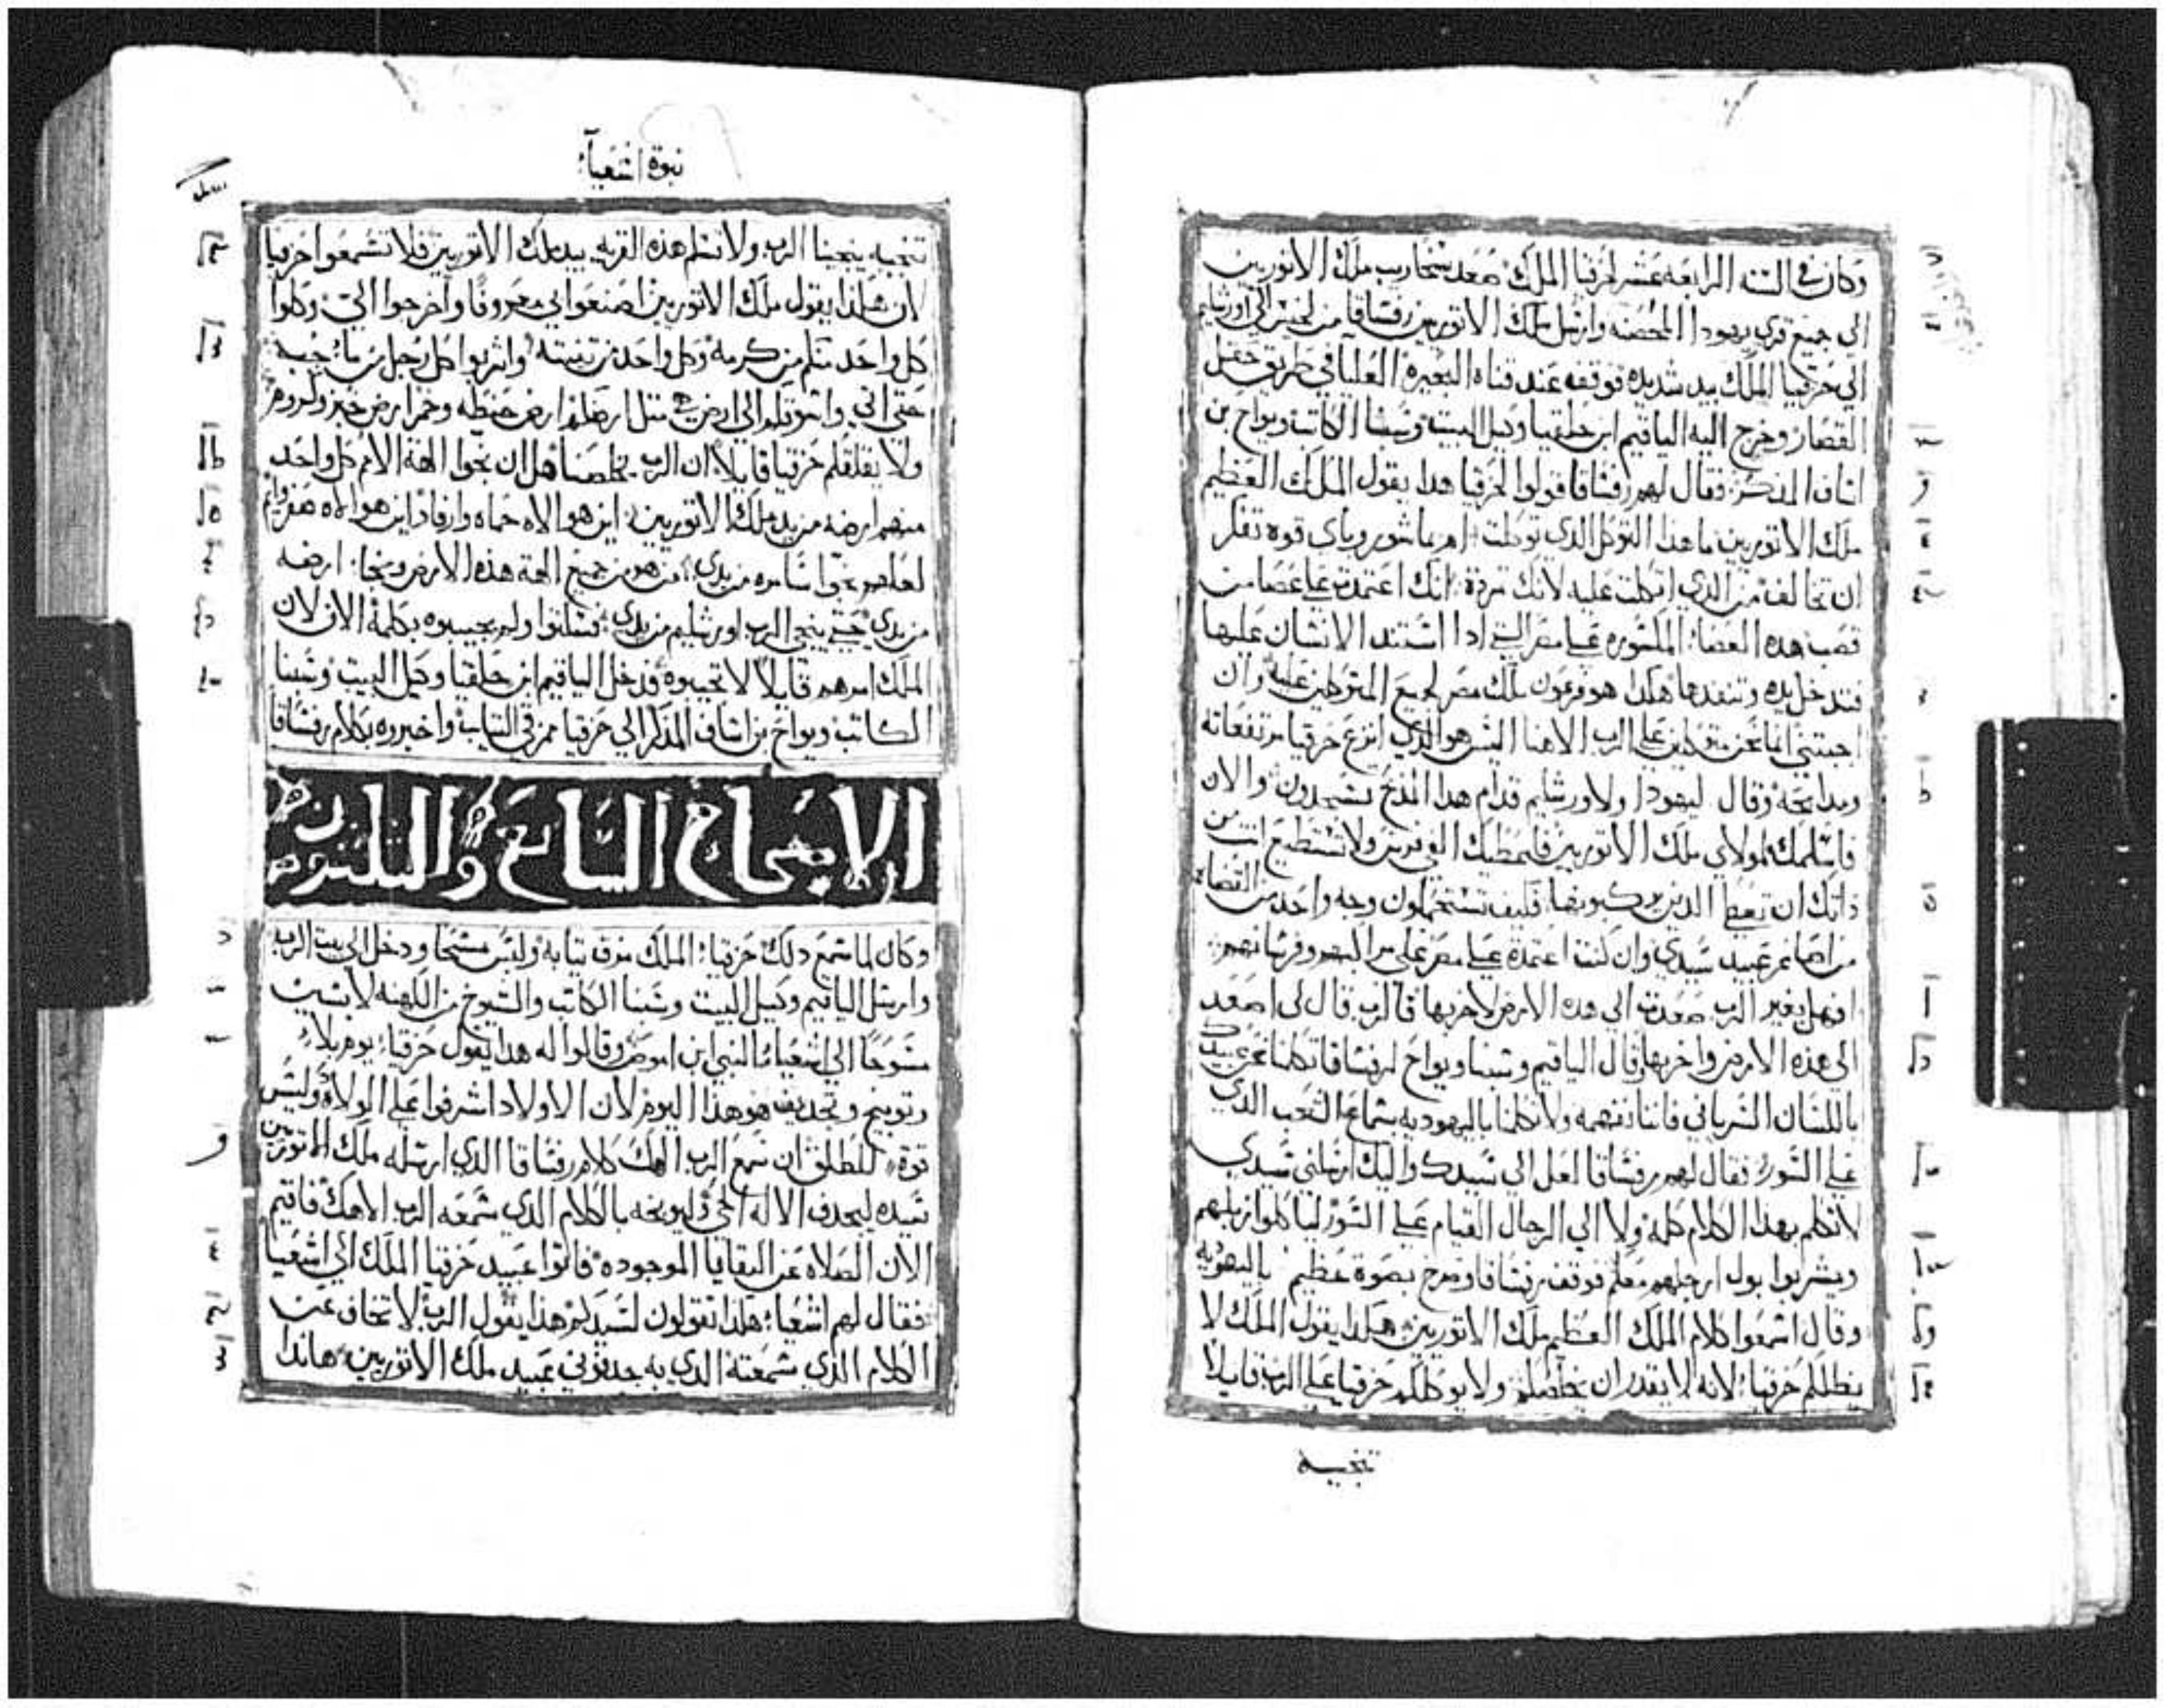 وكان في السنه الرابعه عشر لحزقيا الملك صعد سنحاريب ملك الاتوريين
الى جميع قري يهودا المحصنه وارسل ملك الاتوريين رفساقا من لخيس الي اورشليم
الي حزقيا الملك بيد شديده فوقف عند قناه البحيره العليا في طريق حقل
القصار وخرج اليه الياقيم ابن حلقيا وكيل البيت وسبنا الكاتب ويواح بن
اساف المذكر فقال لهم رفساقا قولوا لحزقيا هدا يقول الملك العظيم
ملك الاتوريين ما هدا التوكل الدي توكلت ام بما شور وباي قوه تفكر
ان تخالف من الدي اتكلت عليه لانك مردة انك اعتمدت على عصا من
قصب هده العصا المكسوره على مصر التي ادا استند الانسان عليها
فتدخل يده وتنفدها هكدا هو فرعون ملك مصر لجميع المتوكلين عليه وان
اجبتني اننا نحن متوكلين على الرب الاهنا اليس هو الذي انزع حزقيا مرتفعاته
ومدابحه وقال ليهودا ولاورشليم قدام هدا المدبح تسجدون والان
فاسلمك لمولاي ملك الاتوريين فايعطيك الفي فرس ولا تستطيع انت من
ذاتك ان تعطي الدين يركبونها فكيف تستحملون وجه واحد من القضاه
من اصاغر عبيد سيدي وان كنت اعتمدة على مصر على مراكب وفرسانهم
افهل بغير الرب صعدت الي هده الارض لاخربها فالرب قال لي اصعد
الى هذه الارض واخربها فقال الياقيم وسبنا ويواح لرفساقا تكلمنا نحن عبيدك
باللسان السرياني فاننا نفهمه ولا تكلمنا باليهوديه بسماع الشعب الدي
علي السور فقال لهم رفساقا لعل الي سيدك واليك ارسلني سيدي
لاتكلم بهدا الكلام كله ولا الي الرجال القيام على السور لياكلوا زبلهم
ويشربوا بول ارجلهم معكم فوقف رفساقا وصرخ بصوة عظيم باليهوديه
وقال اسمعوا كلام الملك العظيم ملك الاتوريين هكدا يقول الملك لا
يطلكم حزقيا لانه لا يقدر ان يخلصكم ولا يوكلكم حزقيا على الرب قايلا
تنجيه
نبوة اشعيآ
تنجيه ينجينا الرب ولا تسلم هذه القريه بيد ملك الاتوريين فلا تسمعوا حزقيا
لان هكذا يقول ملك الاتوريين اصنعوا لي معروفا واخرجوا الي وكلوا
كل واحد منكم من كرمه وكل واحد من تينته واشربوا كل رجل من ما جبه
حتى اتي واسوقكم الي ارض هي مثل ارضكم ارض حنطه وخمر ارض خبز وكروم
ولا يقلقلكم حزقيا قايلا ان الرب يخلصنا هل ان نجوا الهة الامم كل واحد
منهم ارضه من يد ملك الاتوريين اين هو الاه حماه وارفاد اين هو الاه صفروايم
لعلهم نجوا شامره من يدي من هو من جميع الهة هذه الارض ونجا ارضه
من يدي حتى ينجي الرب اورشليم من يدي فسكتوا ولم يجيبوه بكلمة الان لان
الملك امرهم قايلا لا تجيبوه فدخل الياقيم ابن حلقيا وكيل البيت وسبنا
الكاتب ويواح بن اساف المذكر الي حزقيا ممزقي التياب واخبروه بكلام رفساقا
الاصحاح السابع والثلثون
وكان لما سمع دلك حزقيا الملك مزق تيابه ولبس مسحا ودخل الي بيت الرب
وارسل الياقيم وكيل البيت وسبنا الكاتب والشيوخ من الكهنه لابسين
مسوحا الي اشعيا النبي ابن اموص وقالوا له هدا يقول حزقيا يوم بلاء
وتوبيخ وتجديف هو هذا اليوم لان الاولاد اشرفوا على الولاده وليس
قوة للطلق ان سمع الرب الهك كلام رفساقا الذي ارسله ملك الاتوريين
سيده ليجدف الاله الحي وليوبخه بالكلام الدي سمعه الرب الاهك فاقيم
الان الصلاه عن البقايا الموجوده فاتوا عبيد حزقيا الملك الي اشعيا
فقال لهم اشعيا هكدا تقولون لسيدكم هدا يقول الرب لا تخاف عن
الكلام الذي سمعته الدي به جدفوني عبيد ملك الاتوريين هاندا